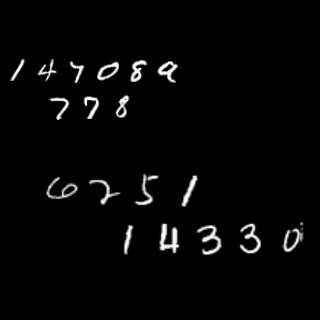 147089
778
6251
14330